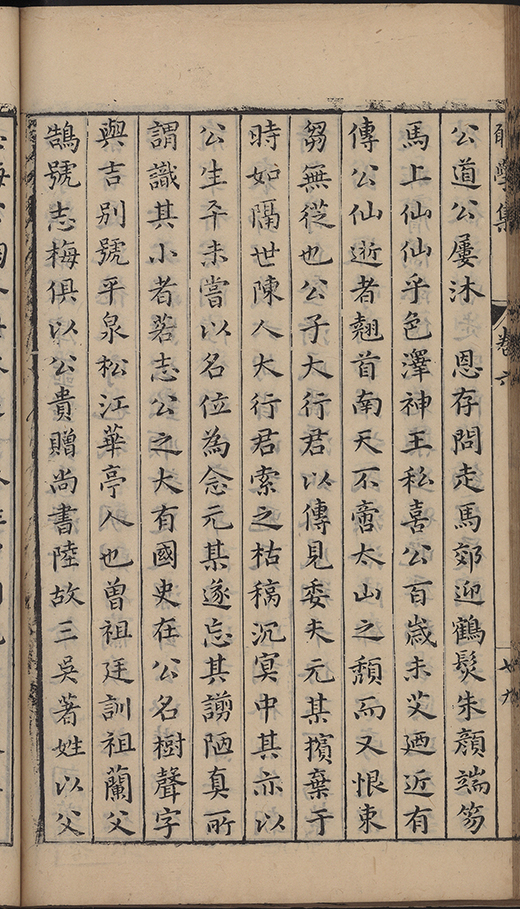 學集 卷六 七九
公道公屢沐　恩存問走馬郊迎鶴髮朱顏端笏
馬上仙仙乎色澤神王私喜公百歲未艾廼近有
傳公仙逝者翹首南天不啻太山之頹而又恨束
芻無從也公子大行君以傳見委夫元某擯棄于
時如隔世陳人大行君索之枯稿沉寞中其亦以
公生平未嘗以名位為念元某遂忘其謭陋真所
謂識其小者若志公之大有國史在公名樹聲字
與吉別號平泉松江華亭人也曾祖廷訓祖蘭父
鵠號志梅俱以公貴贈尚書陸故三吳著姓以父